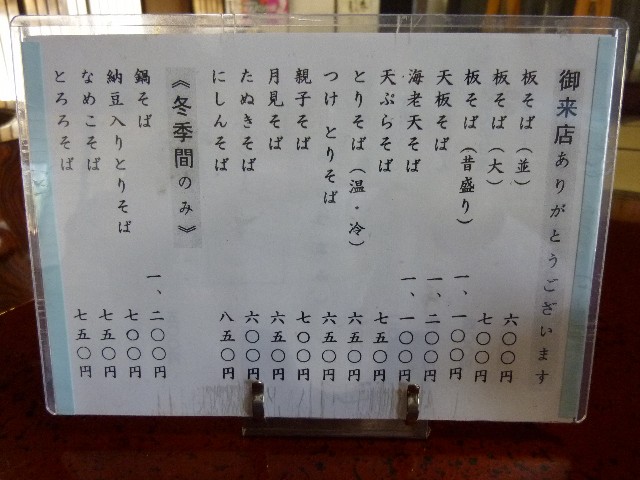 御来店ありがとうございます
板そば（並） 六〇〇円
板そば（大） 七〇〇円
板そば（昔盛り） 一、一〇〇円
天板そば 一、二〇〇円
海老天そば 一、一〇〇円
天ぷらそば 七五〇円
とりそば（温・冷） 六五〇円
つけ とりそば 六五〇円
親子そば 七〇〇円
月見そば 六五〇円
たぬきそば 六〇〇円
にしんそば 八五〇円
《冬季間のみ》
鍋そば 一、二〇〇円
納豆入りとりそば 七〇〇円
なめこそば 七五〇円
とろろそば 七五〇円